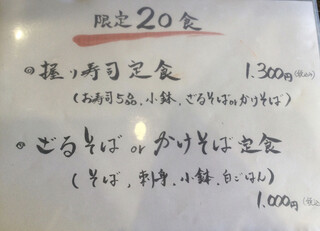 限定20食
◎握り寿司定食 1.300円(税込)
(お寿司5品、小鉢、ざるそばorかけそば)
◎ざるそばorかけそば定食
(そば、刺身、小鉢、白ごはん)
1.000円(税込)